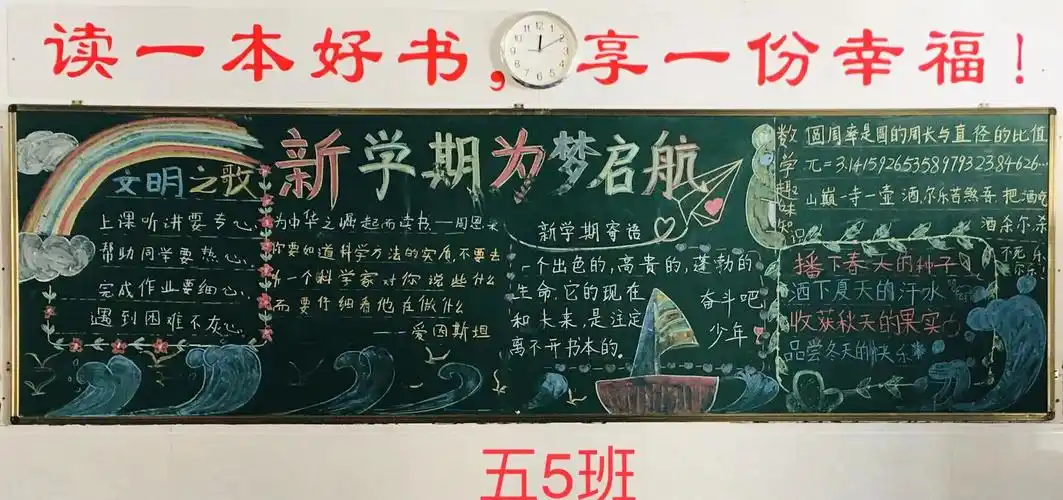 读一本好书，享一份幸福！
12 1 2 3 4 5 6 7 8 9 10 11
新学期为梦启航
文明之歌
上课听讲要专心，
帮助同学要热心，
完成作业要细心，
遇到困难不灰心
为中华之崛起而读书——周恩来
你要知道科学方法的实质，不要去
听一个科学家对你说些什么
而要仔细看他在做什么
——爱因斯坦
新学期寄语
一个出色的，高贵的，蓬勃的
生命，它的现在
和未来，是注定
离不开书本的。
奋斗吧
少年
数学趣味知识
圆周率是圆的周长与直径的比值
π=3.1415926535897932384626…
山巅一寺一壶酒，尔乐苦煞吾，把酒吃
酒杀尔，杀
不死，乐
尔乐
播下春天的种子
洒下夏天的汗水
收获秋天的果实
品尝冬天的快乐
五5班